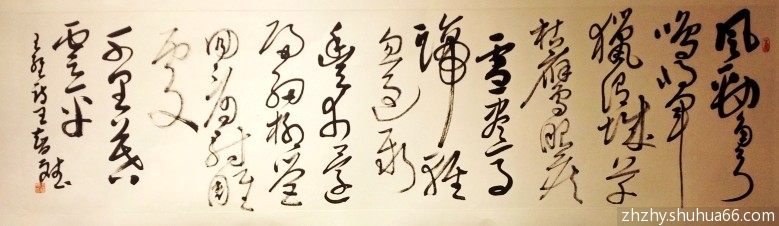 風勁角弓
鳴將軍
獵渭城草
枯鷹眼疾
雪盡馬
蹄輕
忽過新
豐市還
歸細柳營
回看射雕
處
千里暮
雲平
王維詩王
zhzhy.shuhua66.com